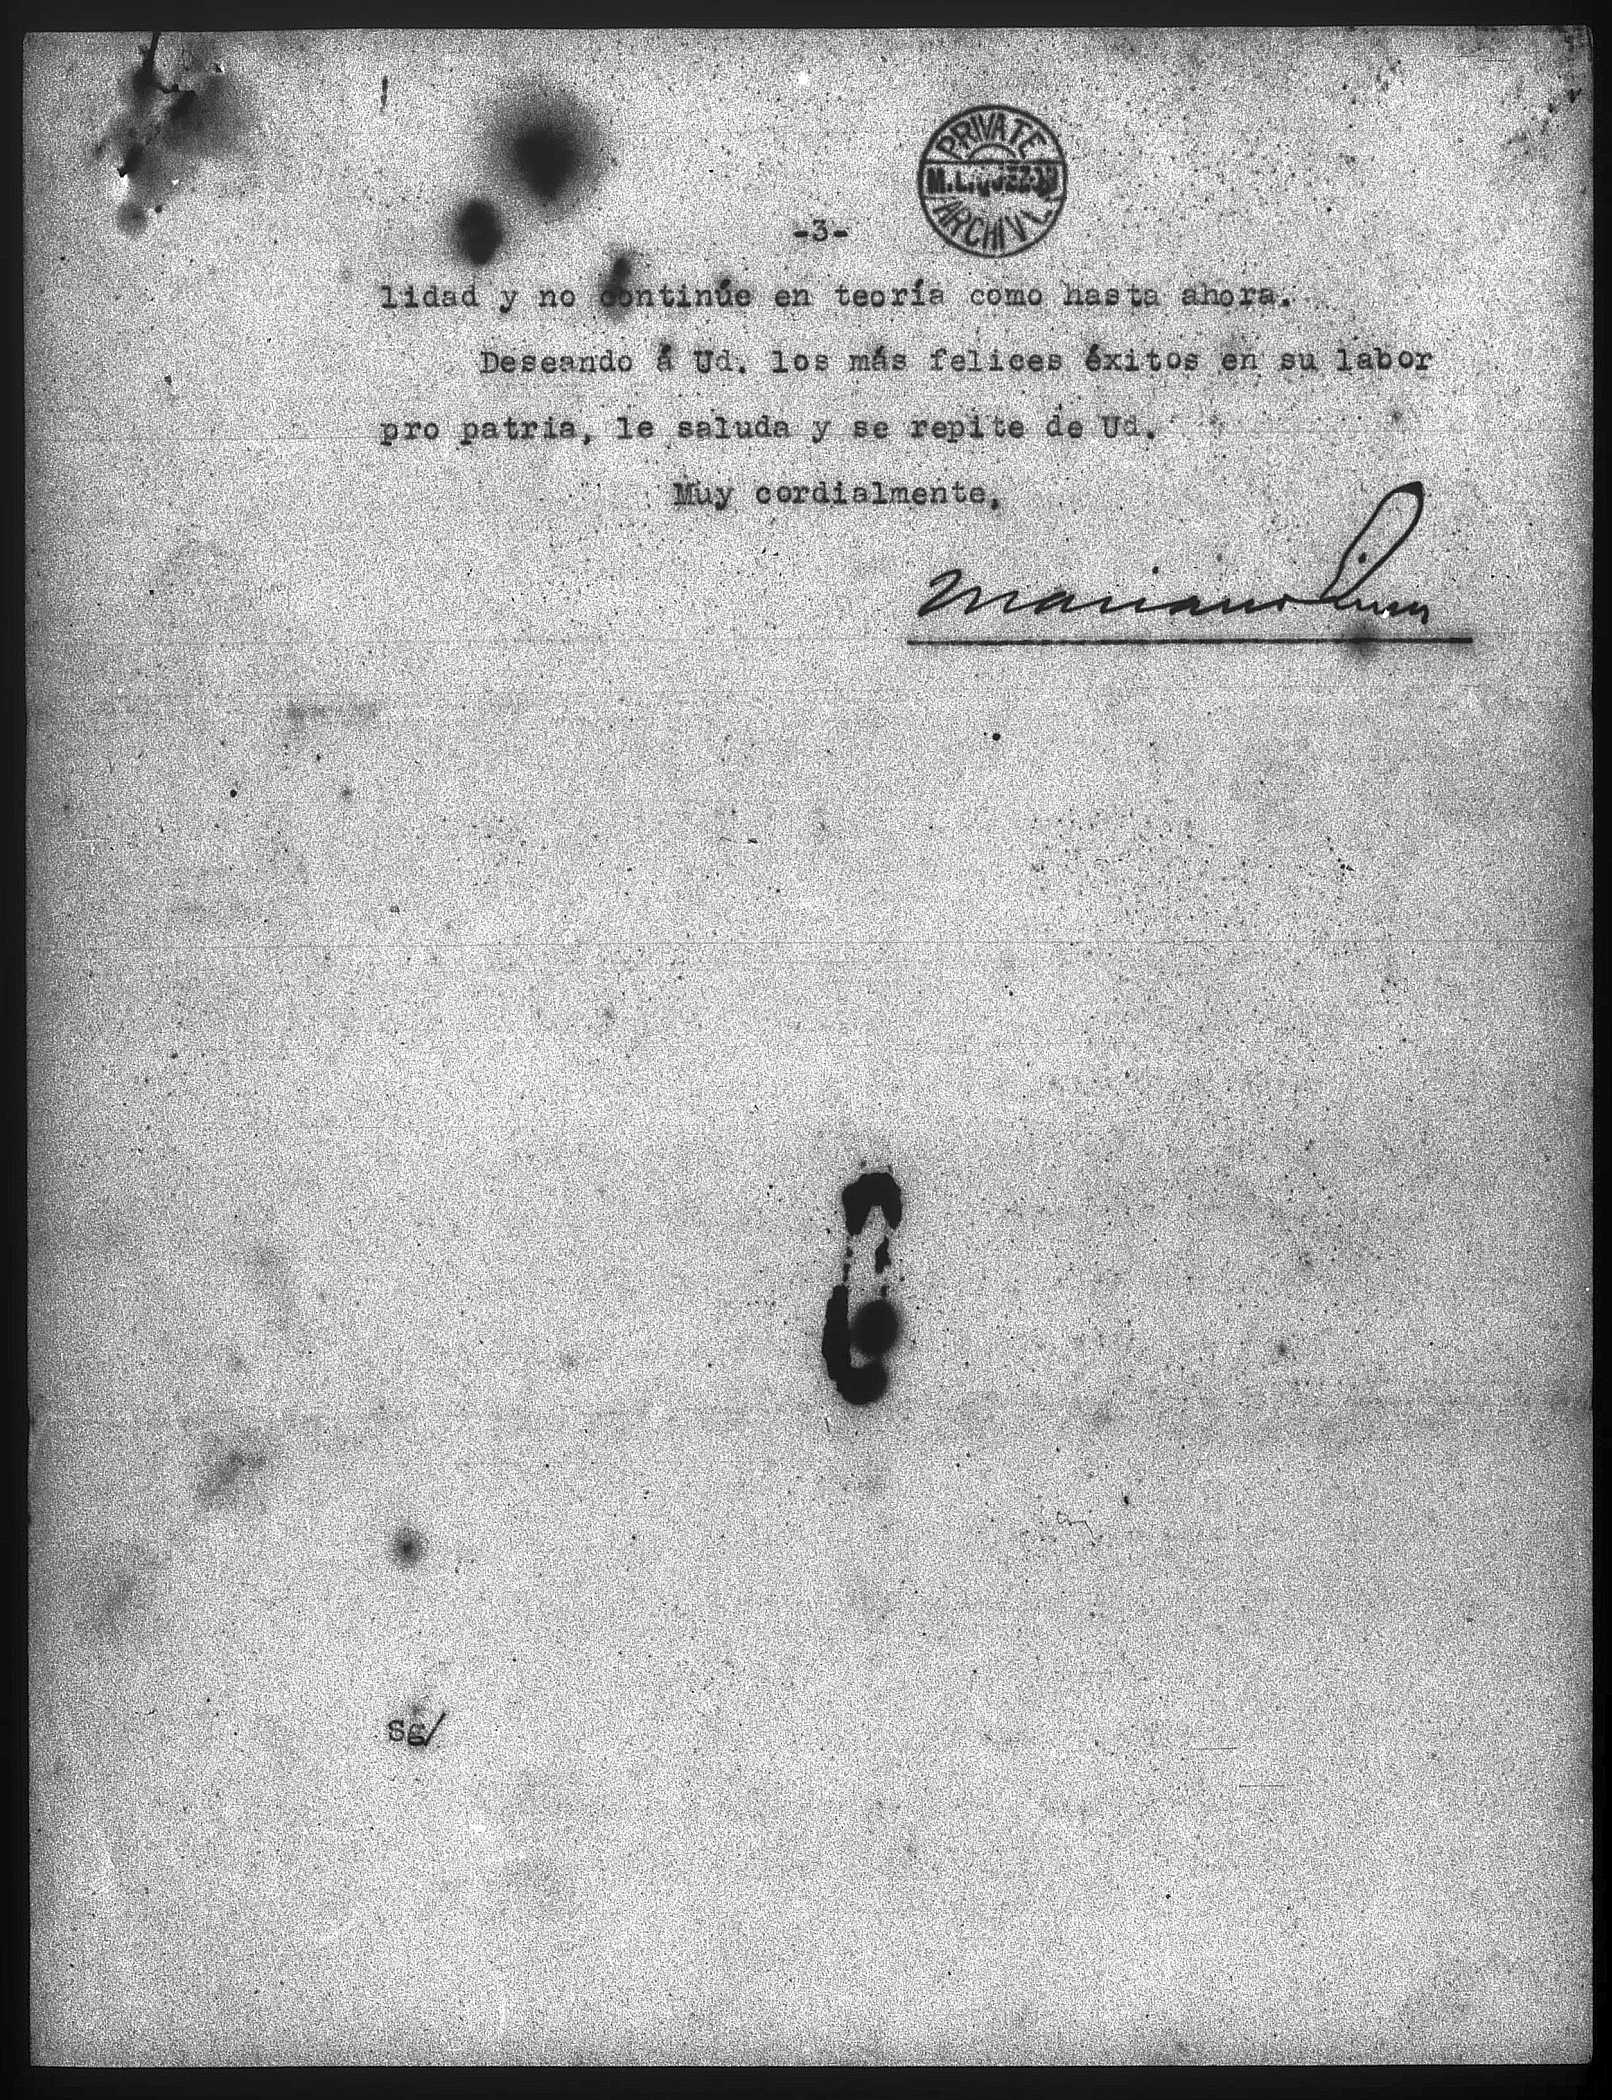 PRIVATE
M.L.QUEZON
ARCHIVE
-3-
lidad y no continúe en teoría como hasta ahora.
Deseando á Ud. los más felices éxitos en su labor
pro patria, le saluda y se repite de Ud.
Muy cordialmente,
Mariano
Sg/